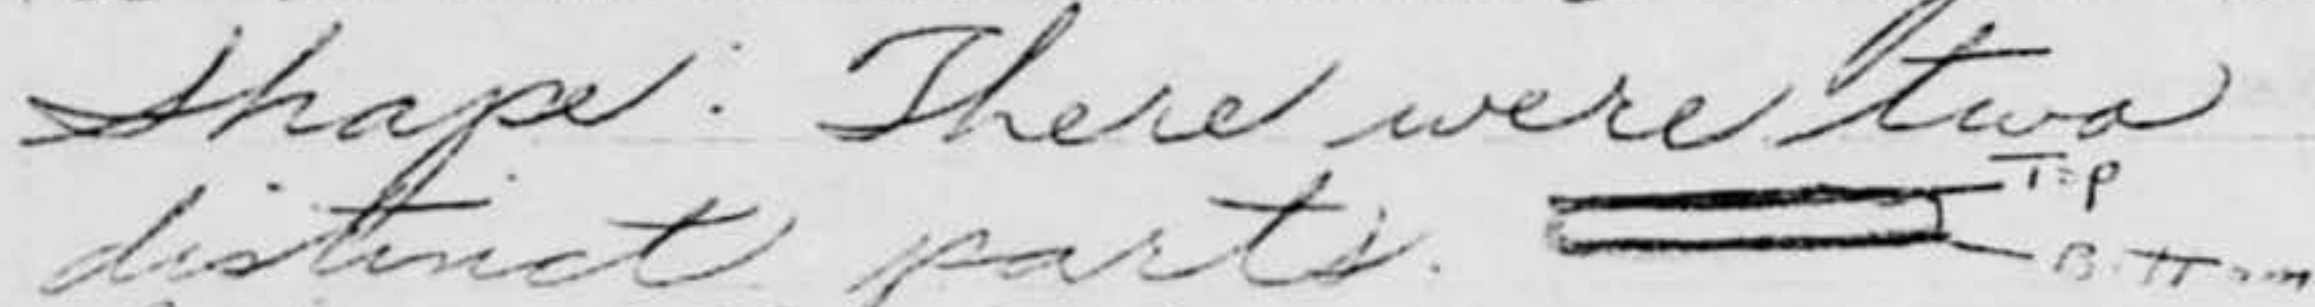 shape. There were two
distinct parts. Top
Bottom